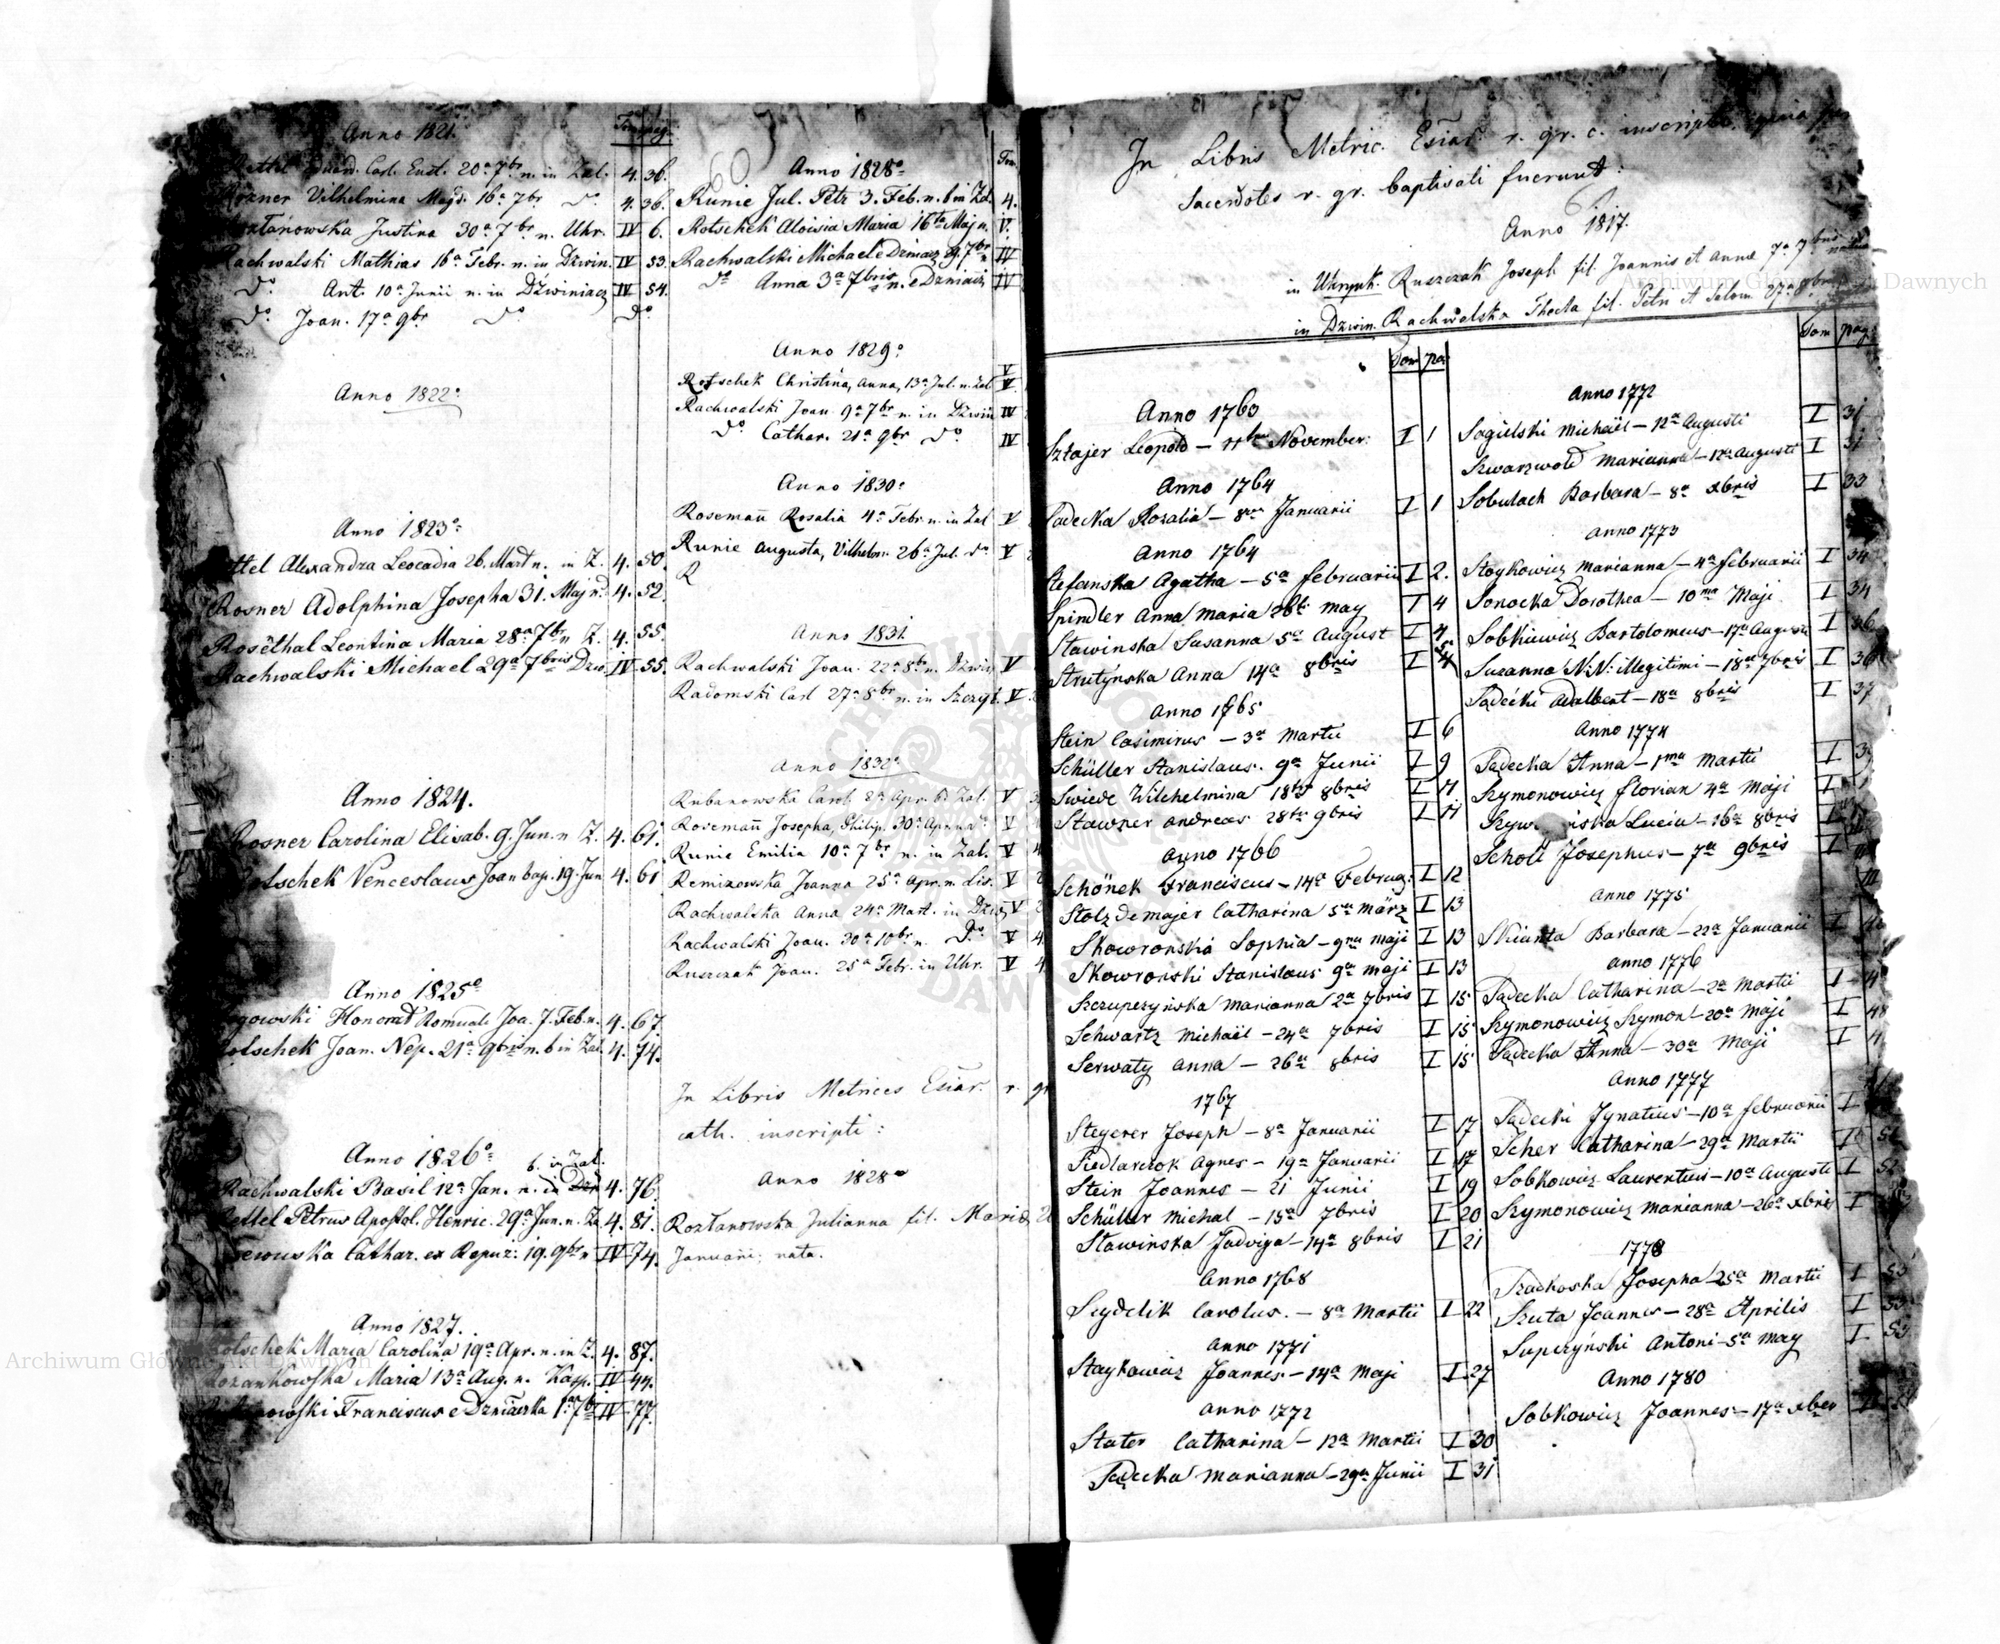 Anno 1821.
Tom pag.
20a 7br n. in Zal. 4. 36.
Vilhelmina Magd. 16a 7br do 4. 36.
Justina 30a 7br n. Uhr. IV 6.
Rachwalski Mathias 16a Febr. n. in Dzwin. IV 53.
do Ant. 10a Junii n. in Dźwiniacz IV 54.
do Joan. 17a 9br do do
Anno 1822.
Anno 1823o
Alexandra Leocadia 26. Mart n. in Z. 4. 50.
Rosner Adolphina Josepha 31. Maj n. 4. 52.
Rosēthal Leontina Maria 28a 7br n Z. 4. 55.
Rachwalski Michael 29a 7bris Dzw. IV 55.
Anno 1824.
Rosner Carolina Elisab. 9. Jun. n Z. 4. 61.
Rotschek Venceslaus Joan bap. 19. Jun 4. 61
Anno 1825o
Honorat Romuald Joa. 7. Feb. n. 4. 67.
Rotschek Joan. Nep. 21a 9bris n. b in Zal. 4. 74.
Anno 1826o
b. in Zal.
Rachwalski Basil 12a Jan. n. in 4. 76.
Rettel Petrus Apostol. Henric. 29a Jun. n. Za 4. 81.
Cathar. ex Repuz: 19. 9br n IV 74.
Anno 1827.
Rotschek Maria Carolina 19a Apr. n. in Z. 4. 87.
Maria 13a Aug. n. IV 44.
Franciscus e 1a 7br IV 77.
Anno 1828o
Tom.
Runie Jul. Petr 3. Feb. n. b in Zal. 4.
Rotschek Aloisia Maria 16ta Maj n. V.
Rachwalski Michael e Dzwiniacz 29. 7br n IV
do Anna 3a 7bris n. e Dzwiniacz IV
Anno 1829o
V
Rotschek Christina, Anna, 13a Jul. n. Zal V
Rachwalski Joan 9a 7br n. in Dźwin IV
do Cathar. 21a 9br do IV
Anno 1830o
Rosemañ Rosalia 4a Febr n. in Zal V
Runie Augusta, Vilhelm. 26a Jul. do V
R
Anno 1831.
Rachwalski Joan. 22a 8br n. Dźwin V
Radomski Carl 27a 8br n. in V
Anno 1832o
Rubanowska Carol. 2a Apr. Zal. V
Rosemañ Josepha, Philip. 30a Apr. V
Runie Emilia 10a 7br n. in Zal. V
Remizowska Joanna 25a Apr. n Lis. V
Rachwalska Anna 24a Mart. in Dźw V
Rachwalski Joan. 30a 10br n. do V 4
Ruszczak Joan. 25a Febr. in Uhr. V 4
In Libris Metrices Ecïar. r. gr
cath. inscripti:
Anno 1828o
Rozłanowska Julianna fil. Maria
Januarii, nata.
In Libris Metric. Ecïar. r. gr. c. inscripti, quia per
Sacerdotes r. gr. baptisati fuerunt:
Anno 1817.
in Uhrynk. Ruszczak Joseph fil. Joannis et Annae 7a 7bris
in Dzwin. Rachwalska Thecla fil. Petri et Salom. 27a 8br
Tom pa.
Anno 1763
Sztajer Leopold – November. I 1
Anno 1764
Sadecka Rosalia – 8va Januarii I 1
Anno 1764
Stefanska Agatha – 5a februarii I 2.
Spindler Anna Maria 28ta May I 4
Stawinska Susanna 5a August I 4
Strutynska Anna 14a 8bris I
Anno 1765
Stein Casimirus – 3a Martii I 6
Schüller Stanislaus. 9a Junii I 9
Swiede Wilchelmina 18ta 8bris I 11
Stawner Andreas 28ta 9bris I 11
Anno 1766
Schönek Franciscus – 14a Februar. I 12
Stolzdemajer Catharina 5ta März I 13
Skowronska Sophia – 9na Maji I 13
Skowronski Stanislaus 9a Maji I 13
Szczupczyńska Marianna 2a 7bris I 15
Schwartz Michaël – 24a 7bris I 15
Serwaty Anna – 26a 8bris I 15
1767
Steyerer Joseph – 8a Januarii I 17
Siedlarczok Agnes – 19a Januarii I 17
Stein Joannes – 21 Junii I 19
Schüller Michal – 15a 7bris I 20
Stawinska Jadviga – 14a 8bris I 21
Anno 1768
Szydelik Carolus. – 8a Martii I 22
Anno 1771
Staykowicz Joannes – 14a Maji I 27
Anno 1772
Stater Catharina – 12a Martii I 30
Sadecka Marianna – 29a Junii I 31
Tom pag.
Anno 1772
Sagielski Michaël – 12a Augusti I 31
Szwarzwold Marianna – 12a Augusti I 31
Sobulach Barbara – 8a Xbris I 33
Anno 1773
Stoykowicz Marianna – 4a februarii I 34
Sonocka Dorothea – 10ma Maji I 34
Sobkiewicz Bartolomeus – 17a Augusti I 36
Susanna N: N: illegitimi – 18a 7bris I 36
Sadecki Adalbert – 18a 8bris I 37
Anno 1774
Sadecka Anna – 1ma Martii I
Szymonowicz Florian 4a Maji I
Lucia – 16a 8bris I
Scholl Josephus – 7a 9bris I
Anno 1775
Barbara – 22a Januarii I
Anno 1776
Sadecka Catharina – 2a Martii I
Szymonowicz Szymon – 20a Maji I 48
Sadecka Anna – 30a Maji I 4
Anno 1777
Sadecki Ignatius – 10a februarii I
Scher Catharina – 29a Martii I 51
Sobkowicz Laurentius – 10a Augusti I 52
Szymonowicz Marianna – 26a Xbris I
1778
Josepha 25a Martii I 53
Szuta Joannes – 28a Aprilis I 53
Supczyński Antoni – 5a May I 53
Anno 1780
Sobkowicz Joannes – 17a Xber
Archiwum Główne Akt Dawnych
Archiwum Główne Akt Dawnych